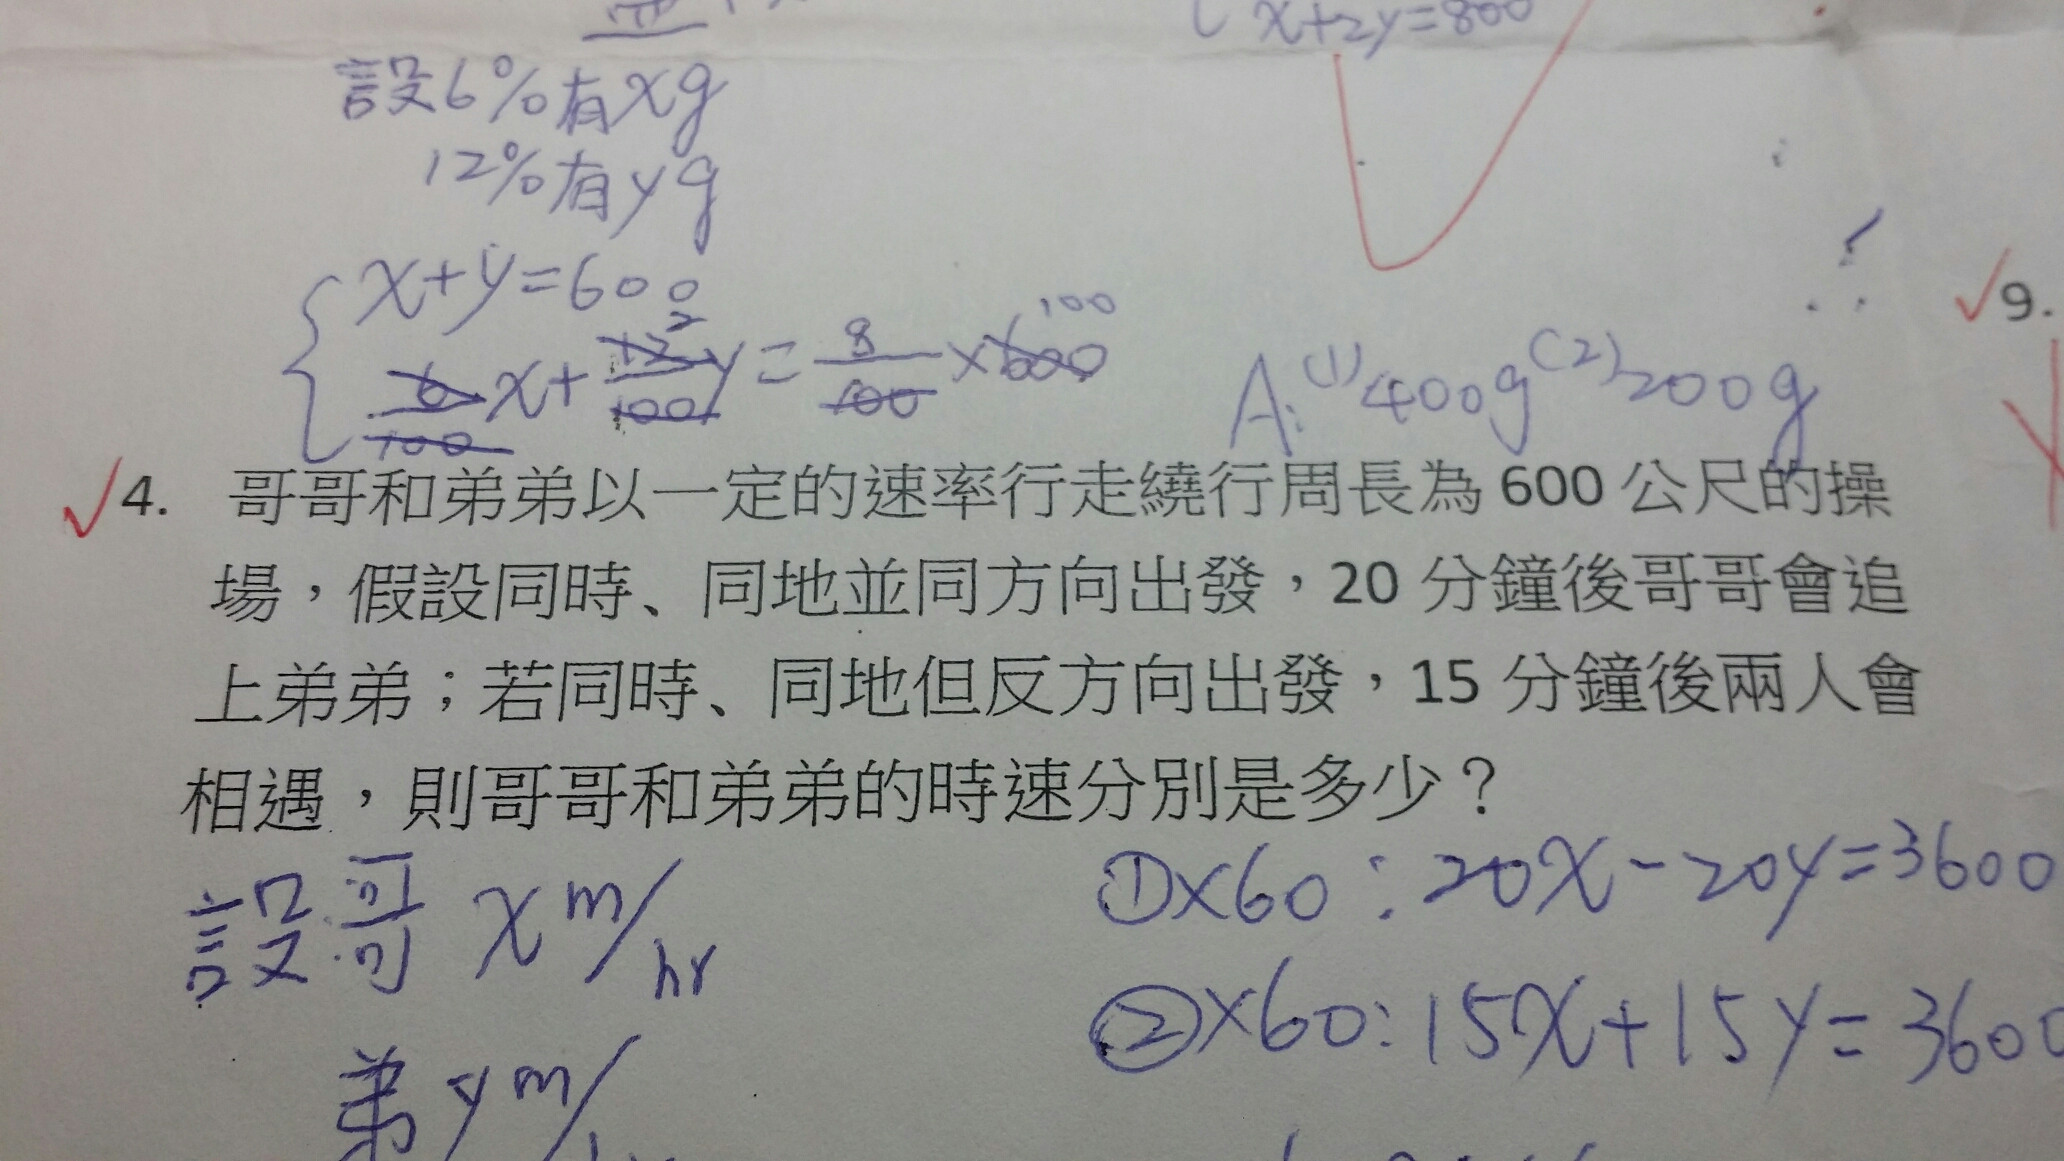 x+2y=800
設6%有xg
12%有yg
x+y=600
6/100 x+ 12/100 y= 8/100 ×600
2
100
A:(1)400g(2)200g
9.
4. 哥哥和弟弟以一定的速率行走繞行周長為 600 公尺的操
場，假設同時、同地並同方向出發，20 分鐘後哥哥會追
上弟弟；若同時、同地但反方向出發，15 分鐘後兩人會
相遇，則哥哥和弟弟的時速分別是多少？
設哥 x m/hr
①×60：20x-20y=3600
②×60：15x+15y=3600
弟 y m/